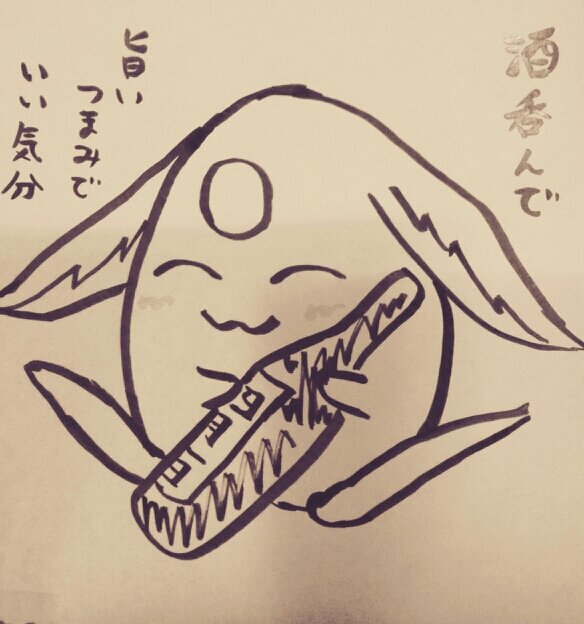 酒呑んで
旨い
つまみで
いい気分